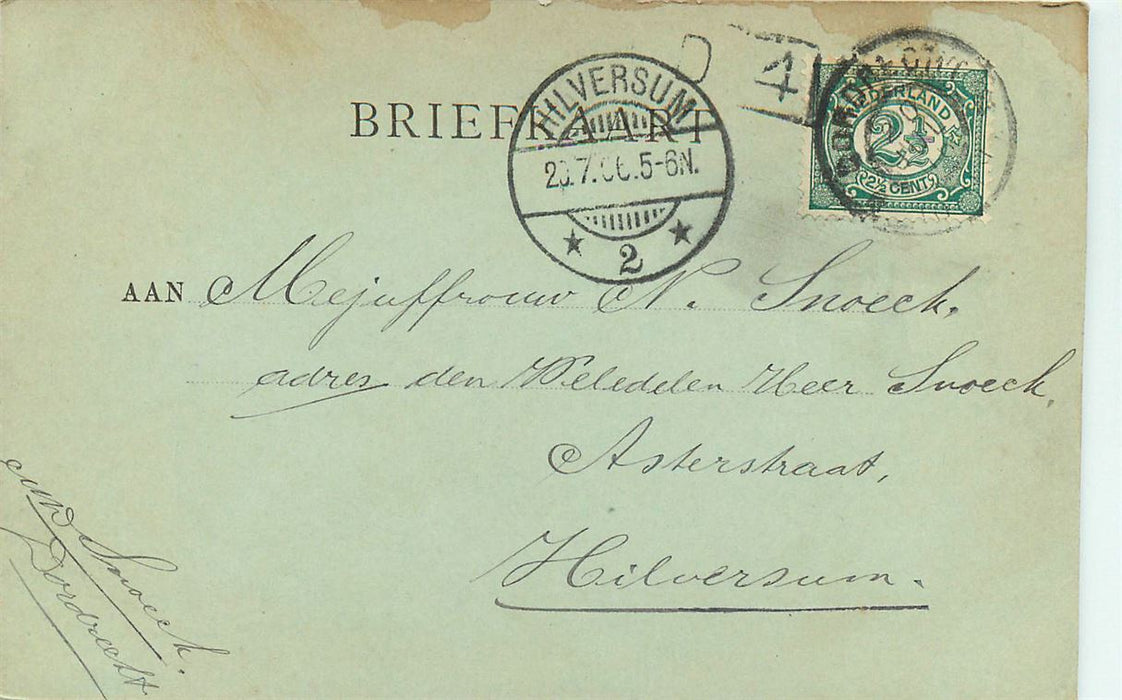 D 4
BRIEFKAART
HILVERSUM
.7. 5-6N.
2
NEDERLAND
2½
2½ CENT
AAN Mejuffrouw N. Snoeck.
adres den Weledelen Heer Snoeck,
Asterstraat,
Hilversum.
Snoeck.
Dordrecht